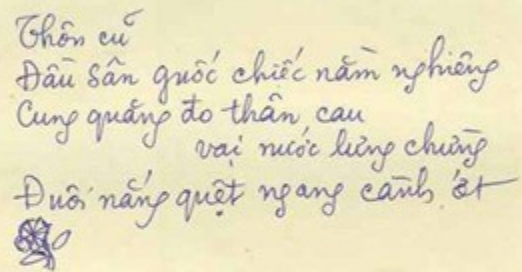 Thôn cũ
Đầu sân guốc chiếc nằm nghiêng
Cung quăng đo thân cau
vại nước lưng chừng
Đuôi nắng quệt ngang cành ớt